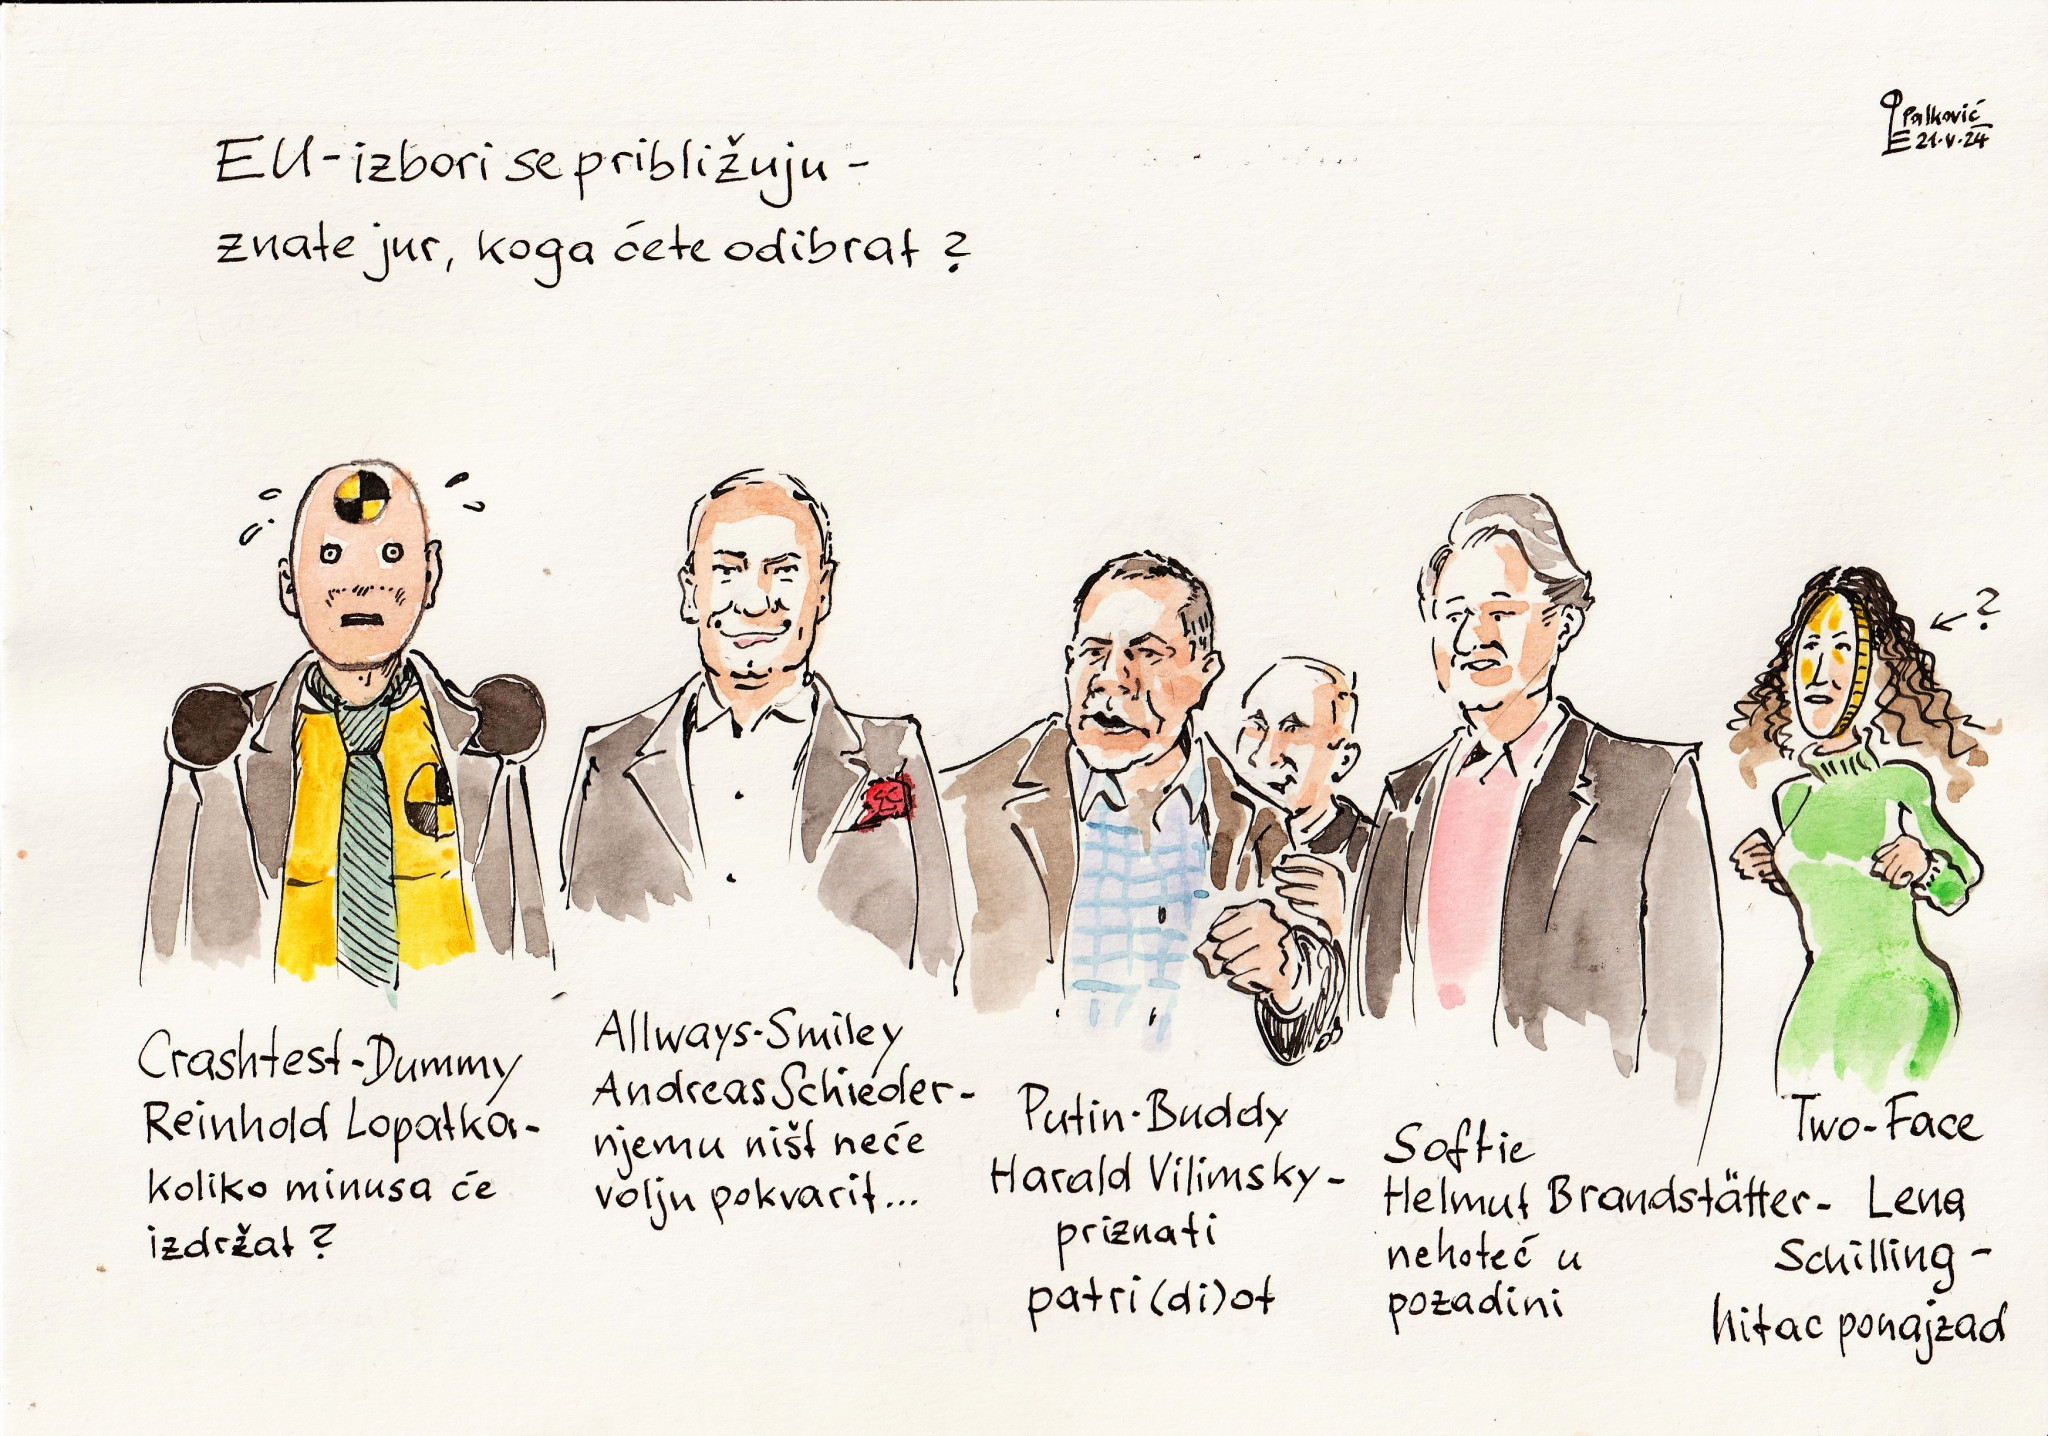 EU-izbori se približuju -
znate jur, koga ćete odibrat?
Palković
21.V.24
?
Crashtest-Dummy
Reinhold Lopatka-
koliko minusa će
izdržat?
Allways-Smiley
Andreas Schieder-
njemu ništ neće
volju pokvarit...
Putin-Buddy
Harald Vilimsky-
priznati
patri(di)ot
Softie
Helmut Brandstätter-
nehoteć u
pozadini
Two-Face
Lena
Schilling-
hitac ponajzad